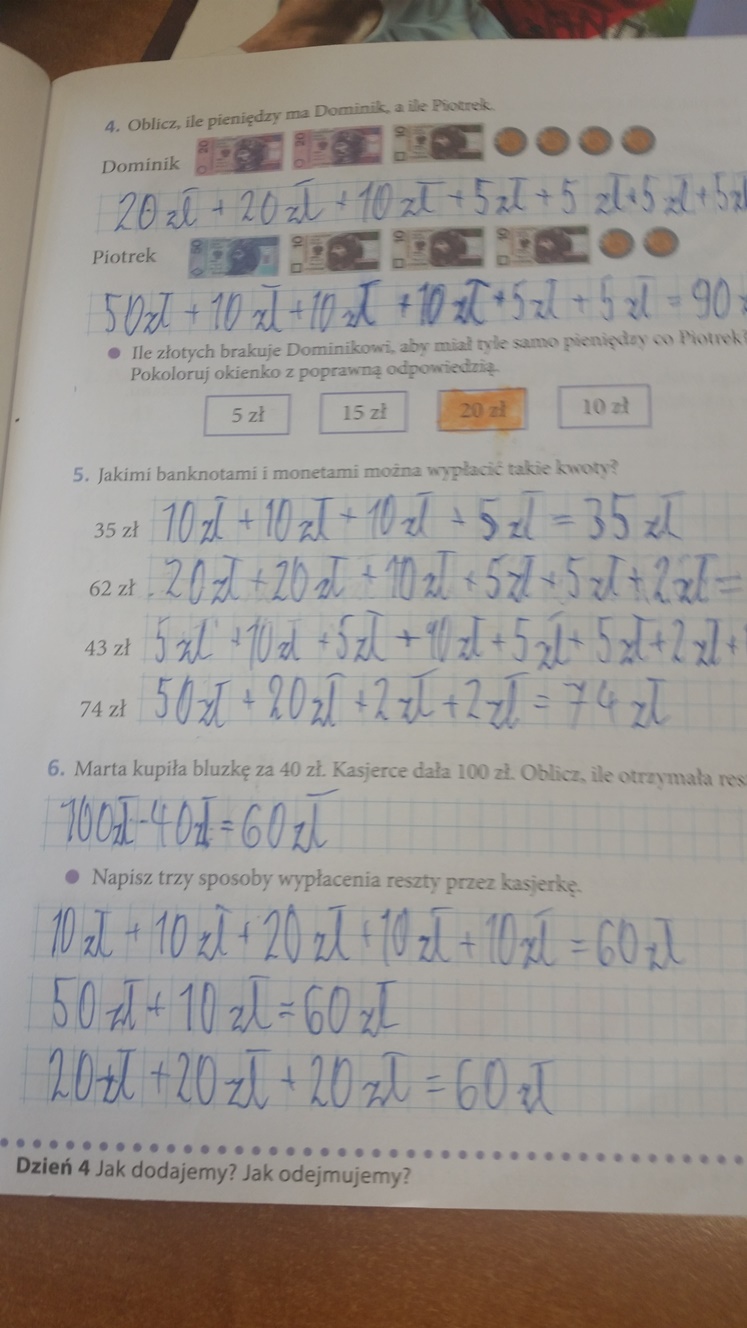 4. Oblicz, ile pieniędzy ma Dominik, a ile Piotrek.
Dominik
20 zł + 20 zł + 10 zł + 5 zł + 5 zł + 5 zł + 5 zł
Piotrek
50 zł + 10 zł + 10 zł + 10 zł + 5 zł + 5 zł = 90
• Ile złotych brakuje Dominikowi, aby miał tyle samo pieniędzy co Piotrek?
Pokoloruj okienko z poprawną odpowiedzią.
5 zł 15 zł 20 zł 10 zł
5. Jakimi banknotami i monetami można wypłacić takie kwoty?
35 zł 10 zł + 10 zł + 10 zł + 5 zł = 35 zł
62 zł 20 zł + 20 zł + 10 zł + 5 zł + 5 zł + 2 zł =
43 zł 5 zł + 10 zł + 5 zł + 10 zł + 5 zł + 5 zł + 2 zł +
74 zł 50 zł + 20 zł + 2 zł + 2 zł = 74 zł
6. Marta kupiła bluzkę za 40 zł. Kasjerce dała 100 zł. Oblicz, ile otrzymała res
100 zł - 40 zł = 60 zł
• Napisz trzy sposoby wypłacenia reszty przez kasjerkę.
10 zł + 10 zł + 20 zł + 10 zł + 10 zł = 60 zł
50 zł + 10 zł = 60 zł
20 zł + 20 zł + 20 zł = 60 zł
Dzień 4 Jak dodajemy? Jak odejmujemy?